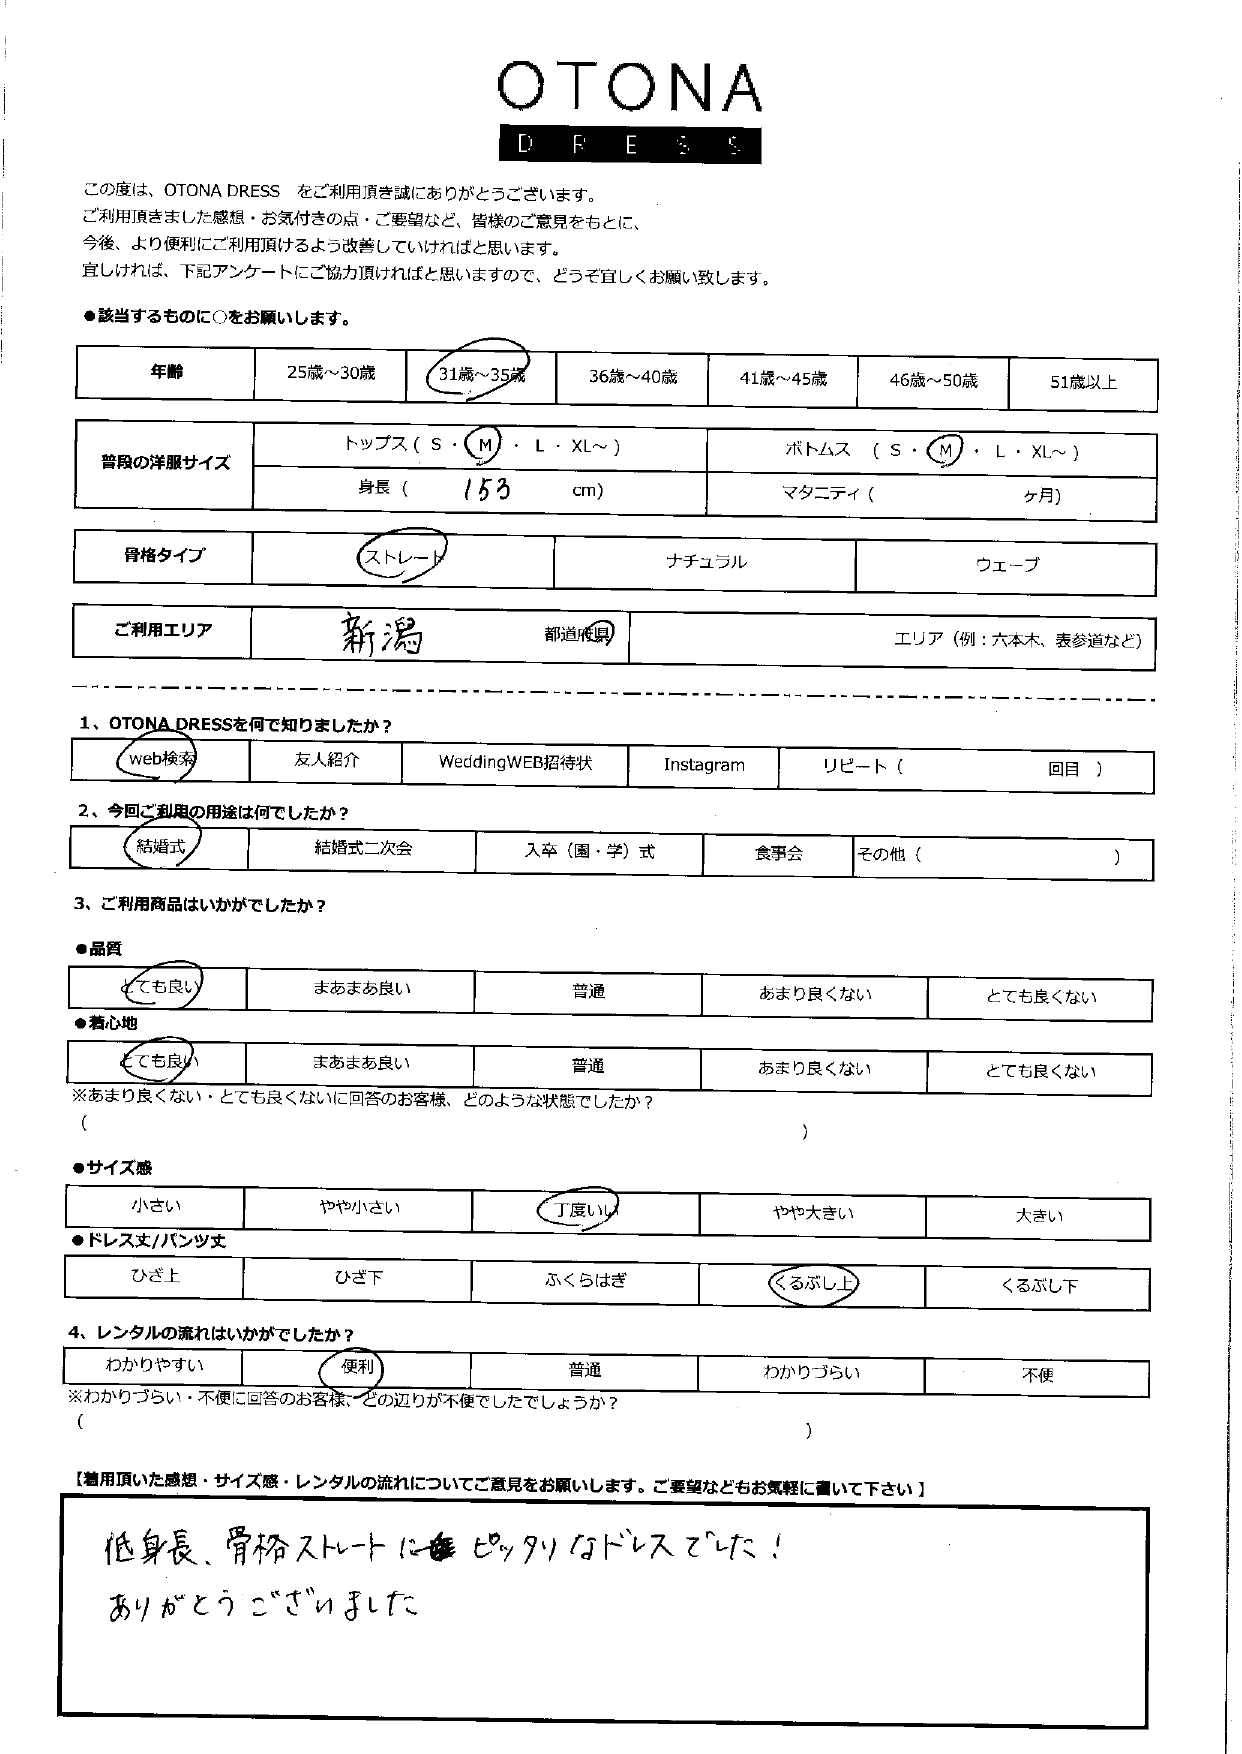 OTONA
DRESS
この度は、OTONA DRESS をご利用頂き誠にありがとうございます。
ご利用頂きました感想・お気付きの点・ご要望など、皆様のご意見をもとに、
今後、より便利にご利用頂けるよう改善していければと思います。
宜しければ、下記アンケートにご協力頂ければと思いますので、どうぞ宜しくお願い致します。
●該当するものに○をお願いします。
年齢 25歳～30歳 31歳～35歳 36歳～40歳 41歳～45歳 46歳～50歳 51歳以上
普段の洋服サイズ トップス ( S ・ M ・ L ・ XL～ ) ボトムス ( S ・ M ・ L ・ XL～ )
身長 ( 153 cm) マタニティ ( ヶ月)
骨格タイプ ストレート ナチュラル ウェーブ
ご利用エリア 新潟 都道府県 エリア（例：六本木、表参道など）
1、OTONA DRESSを何で知りましたか？
web検索 友人紹介 WeddingWEB招待状 Instagram リピート ( 回目 )
2、今回ご利用の用途は何でしたか？
結婚式 結婚式二次会 入卒（園・学）式 食事会 その他 ( )
3、ご利用商品はいかがでしたか？
●品質
とても良い まあまあ良い 普通 あまり良くない とても良くない
●着心地
とても良い まあまあ良い 普通 あまり良くない とても良くない
※あまり良くない・とても良くないに回答のお客様、どのような状態でしたか？
( )
●サイズ感
小さい やや小さい 丁度いい やや大きい 大きい
●ドレス丈/パンツ丈
ひざ上 ひざ下 ふくらはぎ くるぶし上 くるぶし下
4、レンタルの流れはいかがでしたか？
わかりやすい 便利 普通 わかりづらい 不便
※わかりづらい・不便に回答のお客様、どの辺りが不便でしたでしょうか？
( )
【着用頂いた感想・サイズ感・レンタルの流れについてご意見をお願いします。ご要望などもお気軽に書いて下さい】
低身長、骨格ストレートに ピッタリなドレスでした！
ありがとうございました